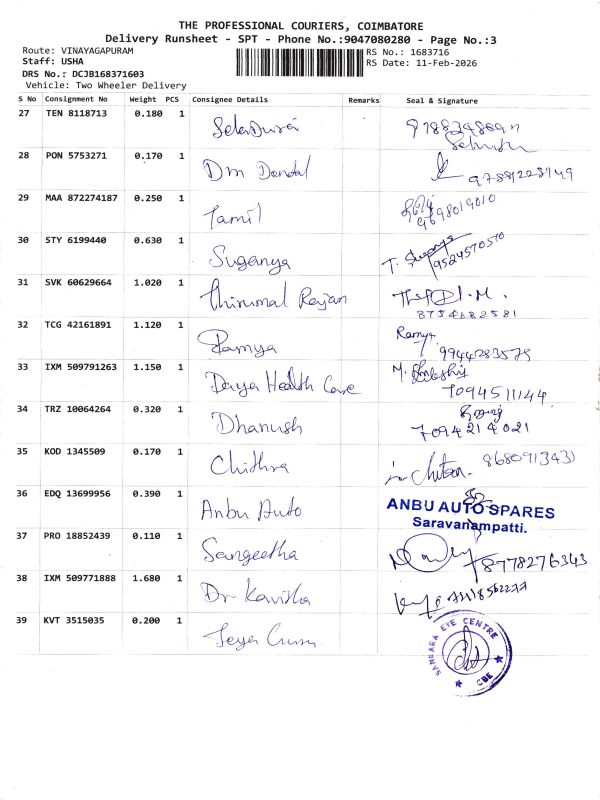 THE PROFESSIONAL COURIERS, COIMBATORE
Delivery Runsheet - SPT - Phone No.:9047080280 - Page No.:3
Route: VINAYAGAPURAM RS No.: 1683716
Staff: USHA RS Date: 11-Feb-2026
DRS No.: DCJB168371603
Vehicle: Two Wheeler Delivery
S No Consignment No Weight PCS Consignee Details Remarks Seal & Signature
27 TEN 8118713 0.180 1
28 PON 5753271 0.170 1 Dm
29 MAA 872274187 0.250 1 Tamil
9698019010
30 STY 6199440 0.630 1 Suganya T. Suganya
9524570570
31 SVK 60629664 1.020 1 Thirumal Rajan
8754882581
32 TCG 42161891 1.120 1 Ramya Ramya
9944283579
33 IXM 509791263 1.150 1 Daya Health Care M.
7094511144
34 TRZ 10064264 0.320 1 Dhanush
7094214021
35 KOD 1345509 0.170 1 Chithra
36 EDQ 13699956 0.390 1 Anbu Auto ANBU AUTO SPARES
Saravanampatti.
37 PRO 18852439 0.110 1 Sangeetha 8778276343
38 IXM 509771888 1.680 1 Dr Kavitha
39 KVT 3515035 0.200 1 Jeya
SANKARA EYE CENTRE
CBE